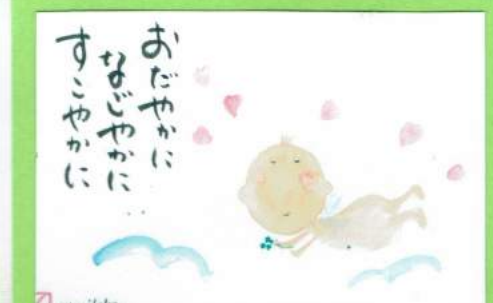 おだやかに
なごやかに
すこやかに